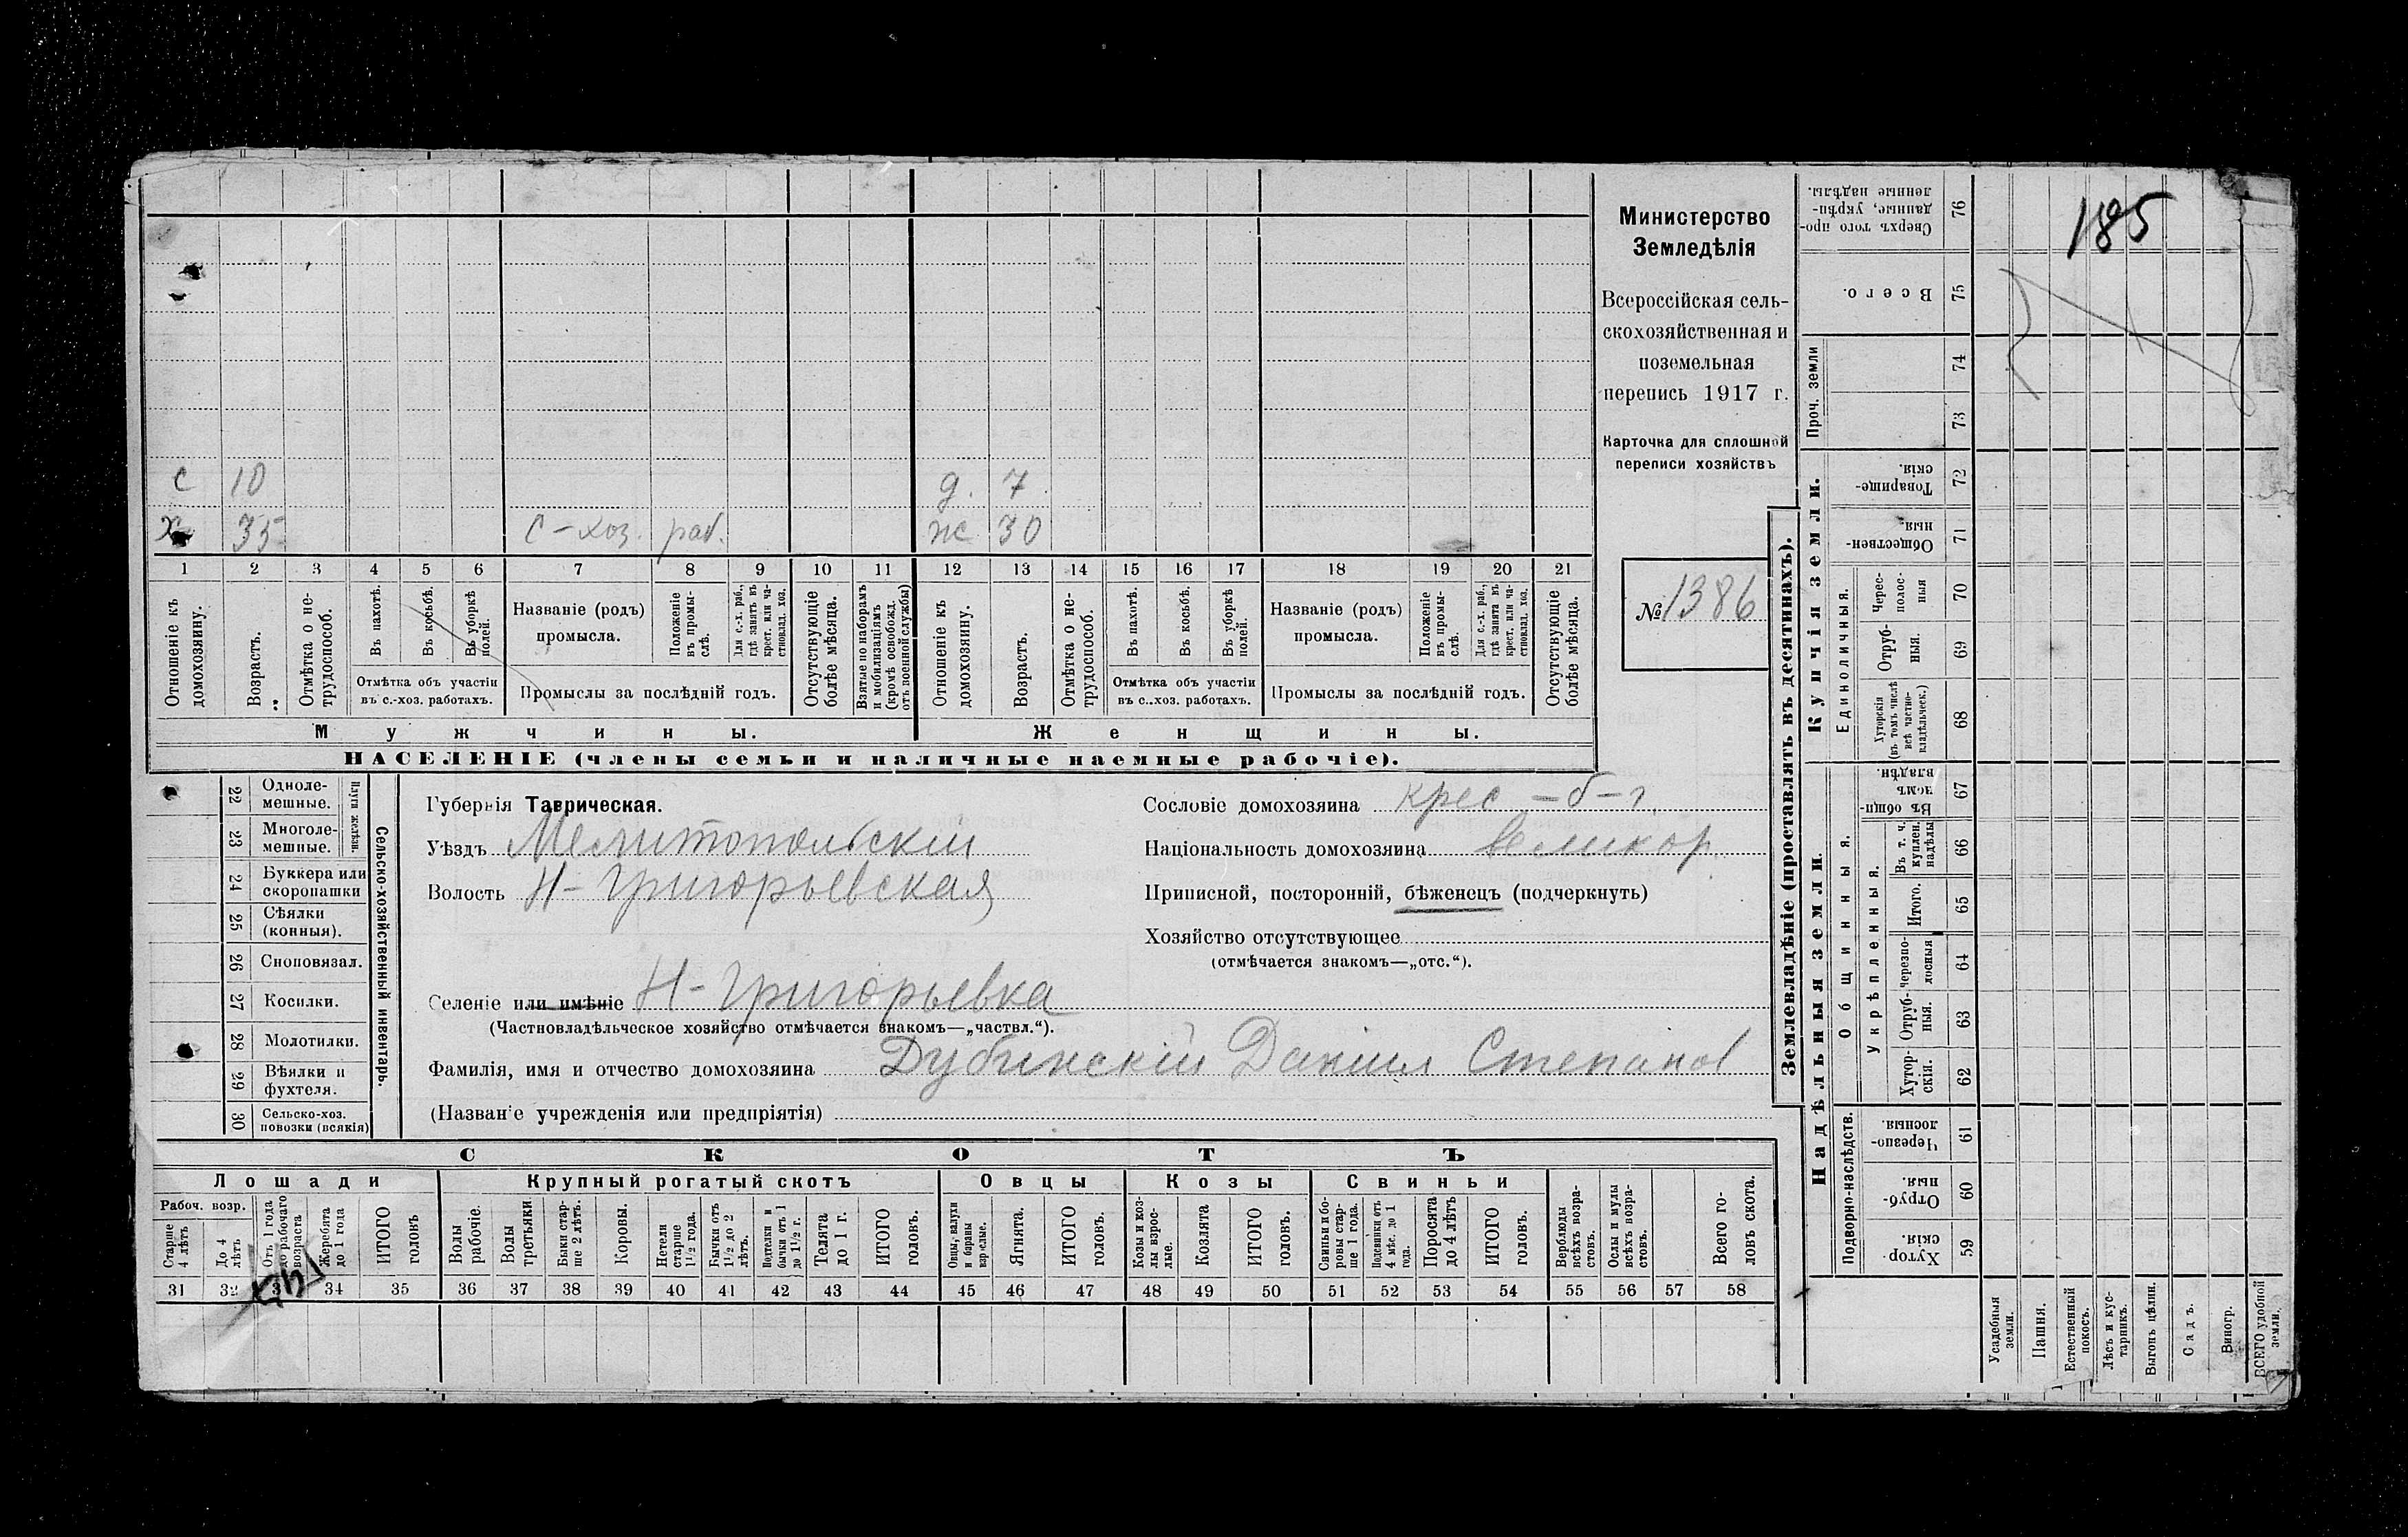 185
с 10 д. 7
х 35 с-хоз. раб. ж 30
1 2 3 4 5 6 7 8 9 10 11 12 13 14 15 16 17 18 19 20 21
Отношеніе къ домохозяину.
Возрастъ.
Отмѣтка о нетрудоспособ.
Въ пахотѣ.
Въ косьбѣ.
Въ уборкѣ полей.
Отмѣтка объ участіи
въ с.-хоз. работахъ.
Названіе (родъ)
промысла.
Положеніе въ промыслѣ.
Для с.-х. раб., гдѣ занятъ въ крест. или частновлад. хоз.
Промыслы за послѣдній годъ.
Отсутствующіе болѣе мѣсяца.
Взятые по наборамъ и мобилизаціямъ (кромѣ освобожд. отъ военной службы)
Отношеніе къ домохозяину.
Возрастъ.
Отмѣтка о нетрудоспособ.
Въ пахотѣ.
Въ косьбѣ.
Въ уборкѣ полей.
Отмѣтка объ участіи
въ с.-хоз. работахъ.
Названіе (родъ)
промысла.
Положеніе въ промыслѣ.
Для с.-х. раб., гдѣ занята въ крест. или частновлад. хоз.
Промыслы за послѣдній годъ.
Отсутствующіе болѣе мѣсяца.
Мужчины. Женщины.
НАСЕЛЕНІЕ (члены семьи и наличные наемные рабочіе).
Министерство
Земледѣлія
Всероссійская сель-
скохозяйственная и
поземельная
перепись 1917 г.
Карточка для сплошной
переписи хозяйствъ
№ 1386
22 Одноле-
мешные.
23 Многоле-
мешные.
Плуги желѣзн.
24 Буккера или
скоропашки
25 Сѣялки
(конныя).
26 Сноповязал.
27 Косилки.
28 Молотилки.
29 Вѣялки и
фухтеля.
30 Сельско-хоз.
повозки (всякія)
Сельско-хозяйственный инвентарь.
Губернія Таврическая.
Уѣздъ Мелитопольскій
Волость Н-Григорьевская
Селеніе или имѣніе Н-Григорьевка
(Частновладѣльческое хозяйство отмѣчается знакомъ—„частвл.“).
Фамилія, имя и отчество домохозяина Дубинскій Даніил Степанов
(Названіе учрежденія или предпріятія)
Сословіе домохозяина крес-б-г.
Національность домохозяина великор.
Приписной, посторонній, бѣженецъ (подчеркнуть)
Хозяйство отсутствующее
(отмѣчается знакомъ—„отс.“).
СКОТЪ
Лошади Крупный рогатый скотъ Овцы Козы Свиньи
Рабоч. возр.
Старше 4 лѣтъ
До 4 лѣтъ
Отъ 1 года до рабочаго возраста
Жеребята до 1 года
ИТОГО головъ
Волы рабочіе.
Волы третьяки
Быки старше 2 лѣтъ.
Коровы.
Нетели старше 1½ года.
Бычки отъ 1½ до 2 лѣтъ.
Подтелки и бычки отъ 1 до 1½ г.
Телята до 1 г.
ИТОГО головъ.
Овцы, валухи и бараны взрослые.
Ягнята.
ИТОГО головъ.
Козы и козлы взрослые.
Козлята
ИТОГО головъ.
Свиньи и боровы старше 1 года.
Подсвинки отъ 4 мѣс. до 1 года.
Поросята до 4 лѣтъ
ИТОГО головъ.
Верблюды всѣхъ возрастовъ.
Ослы и мулы всѣхъ возрастовъ.
Всего головъ скота.
31 32 33 34 35 36 37 38 39 40 41 42 43 44 45 46 47 48 49 50 51 52 53 54 55 56 57 58
Землевладѣніе (проставлять въ десятинахъ).
Сверхъ того проданные, укрѣпленные надѣлы. 76
Всего. 75
Проч. земли 74 73
Купчія земли.
Товарищескія. 72
Общественныя. 71
Единоличныя.
Черес-полосныя 70
Отрубныя. 69
Хуторскія (въ томъ числѣ всѣ частновладѣльческ.) 68
Надѣльныя земли.
Общинныя.
Въ общин. владѣн. 67
Укрѣпленныя.
Въ т. ч. куплен. надѣлы 66
Итого. 65
Черезполосныя 64
Отрубныя. 63
Хуторскія. 62
Подворно-наслѣдств.
Черезполосныя. 61
Отрубныя. 60
Хуторскія. 59
Усадебныя земли.
Пашня.
Естественный покосъ.
Лѣсъ и кустарникъ.
Выгонъ цѣлин.
Садъ.
Виногр.
ВСЕГО удобной земли.